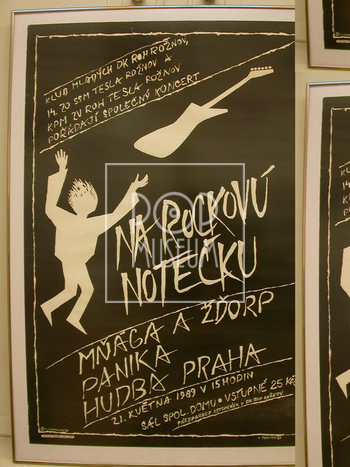 KLUB MLADÝCH DK ROH ROŽNOV,
14. ZO SSM TESLA ROŽNOV A
KPM ZV ROH TESLA ROŽNOV
POŘÁDAJÍ SPOLEČNÝ KONCERT
NA ROCKOVÚ
NOTEČKU
POP
MUSEUM
MŇÁGA A ŽĎORP
PANIKA
HUDBA PRAHA
21. KVĚTNA 1989 V 15 HODIN
SÁL SPOL. DOMU • VSTUPNÉ 25 Kčs